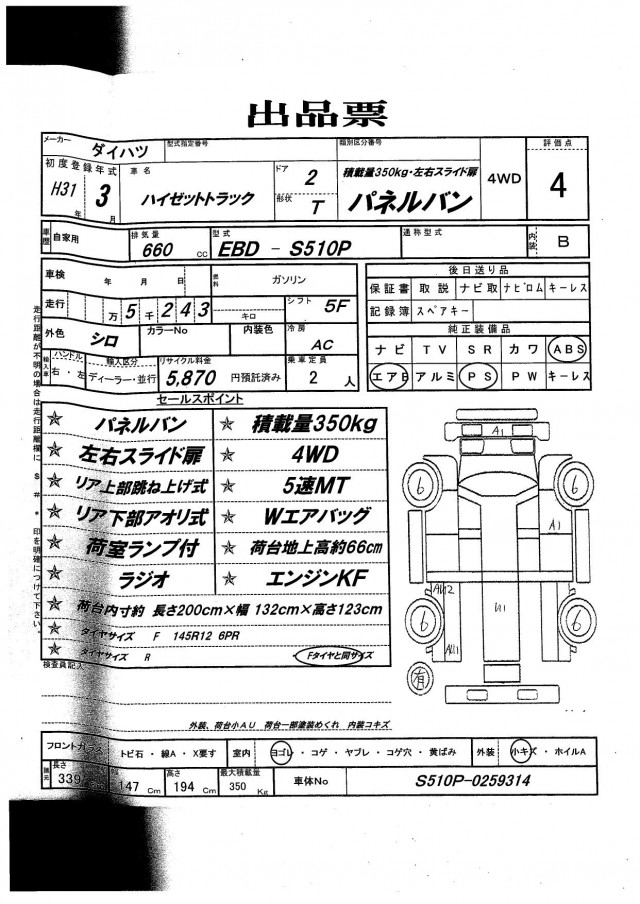 出品票
メーカー ダイハツ 型式指定番号 類別区分番号 4WD 評価点 4
初度登録年式 H31 年 3 月 車名 ハイゼットトラック ドア 2 形状 T 積載量350kg・左右スライド扉 パネルバン
車歴 自家用 排気量 660 CC 型式 EBD - S510P 通称型式 内装 B
車検 年 月 日 燃料 ガソリン
走行 万 5 千 2 4 3 キロ シフト 5F
外色 シロ カラーNo 内装色 冷房 AC
輸入車 ハンドル 右・左 輸入区分 ディーラー・並行 リサイクル料金 5,870 円預託済み 乗車定員 2 人
後日送り品
保証書 取説 ナビ取 ナビロム キーレス
記録簿 スペアキー
純正装備品
ナビ TV SR カワ ABS
エアB アルミ PS PW キーレス
セールスポイント
パネルバン 積載量350kg
左右スライド扉 4WD
リア上部跳ね上げ式 5速MT
リア下部アオリ式 Wエアバッグ
荷室ランプ付 荷台地上高約66cm
ラジオ エンジンKF
荷台内寸約 長さ200cm×幅 132cm×高さ123cm
タイヤサイズ F 145R12 6PR
タイヤサイズ R Fタイヤと同サイズ
検査員記入
走行距離が不明の場合は走行距離欄に $ # * 印を明確につけて下さい。
A1
6 6
A1
6 6
有
外装、荷台小AU 荷台一部塗装めくれ 内装コキズ
フロントガラス トビ石・線A・X要す 室内 ヨゴレ・コゲ・ヤブレ・コゲ穴・黄ばみ 外装 小キズ・ホイルA
諸元 長さ 339 幅 147 Cm 高さ 194 Cm 最大積載量 350 Kg 車体No S510P-0259314